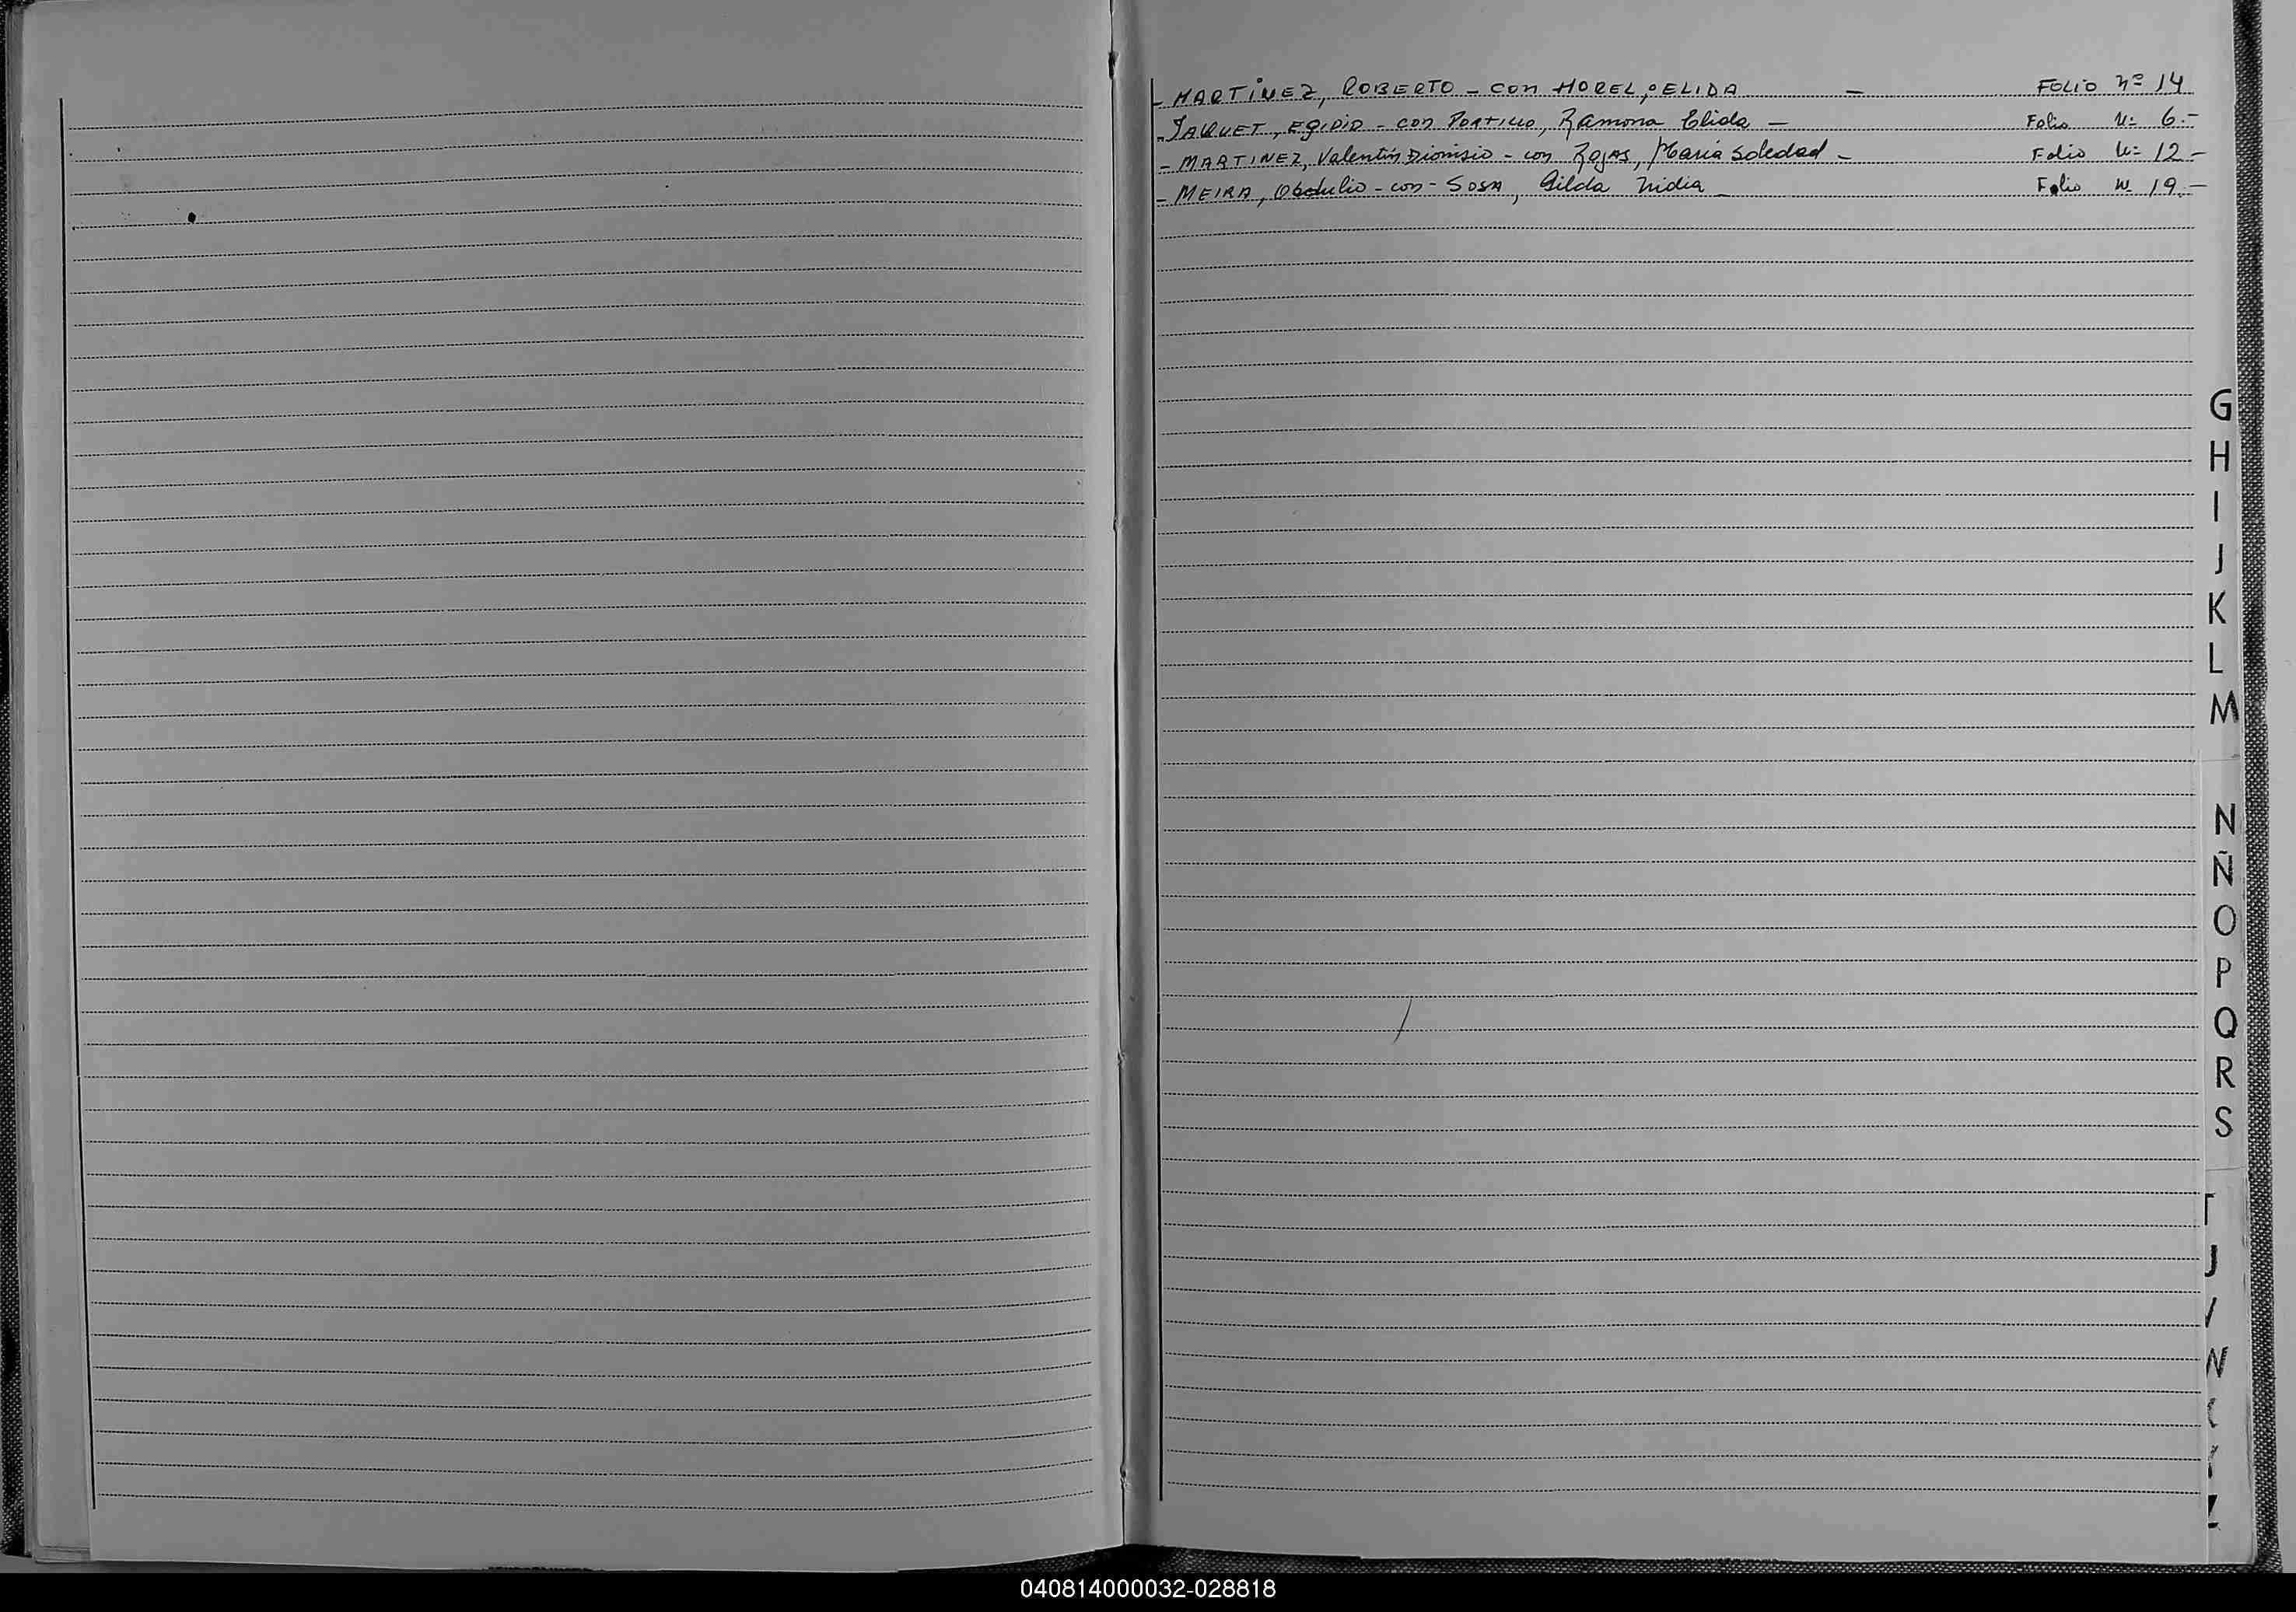 - MARTiNEZ, ROBERTO - con MOREL, ELIDA - FOLIO Nº 14
- JAQUET, EgiDiO - con Portillo, Ramona Elida - Folio Nº 6.-
- MARTINEZ, Valentín Dionisio - con Rojas, María Soledad - Folio Nº 12 -
- MEIRA, Obdulio - con - SOSA, Gilda Nidia - Folio Nº 19 -
G
H
I
J
K
L
M
N
Ñ
O
P
Q
R
S
T
U
V
W
X
Y
Z
040814000032-028818